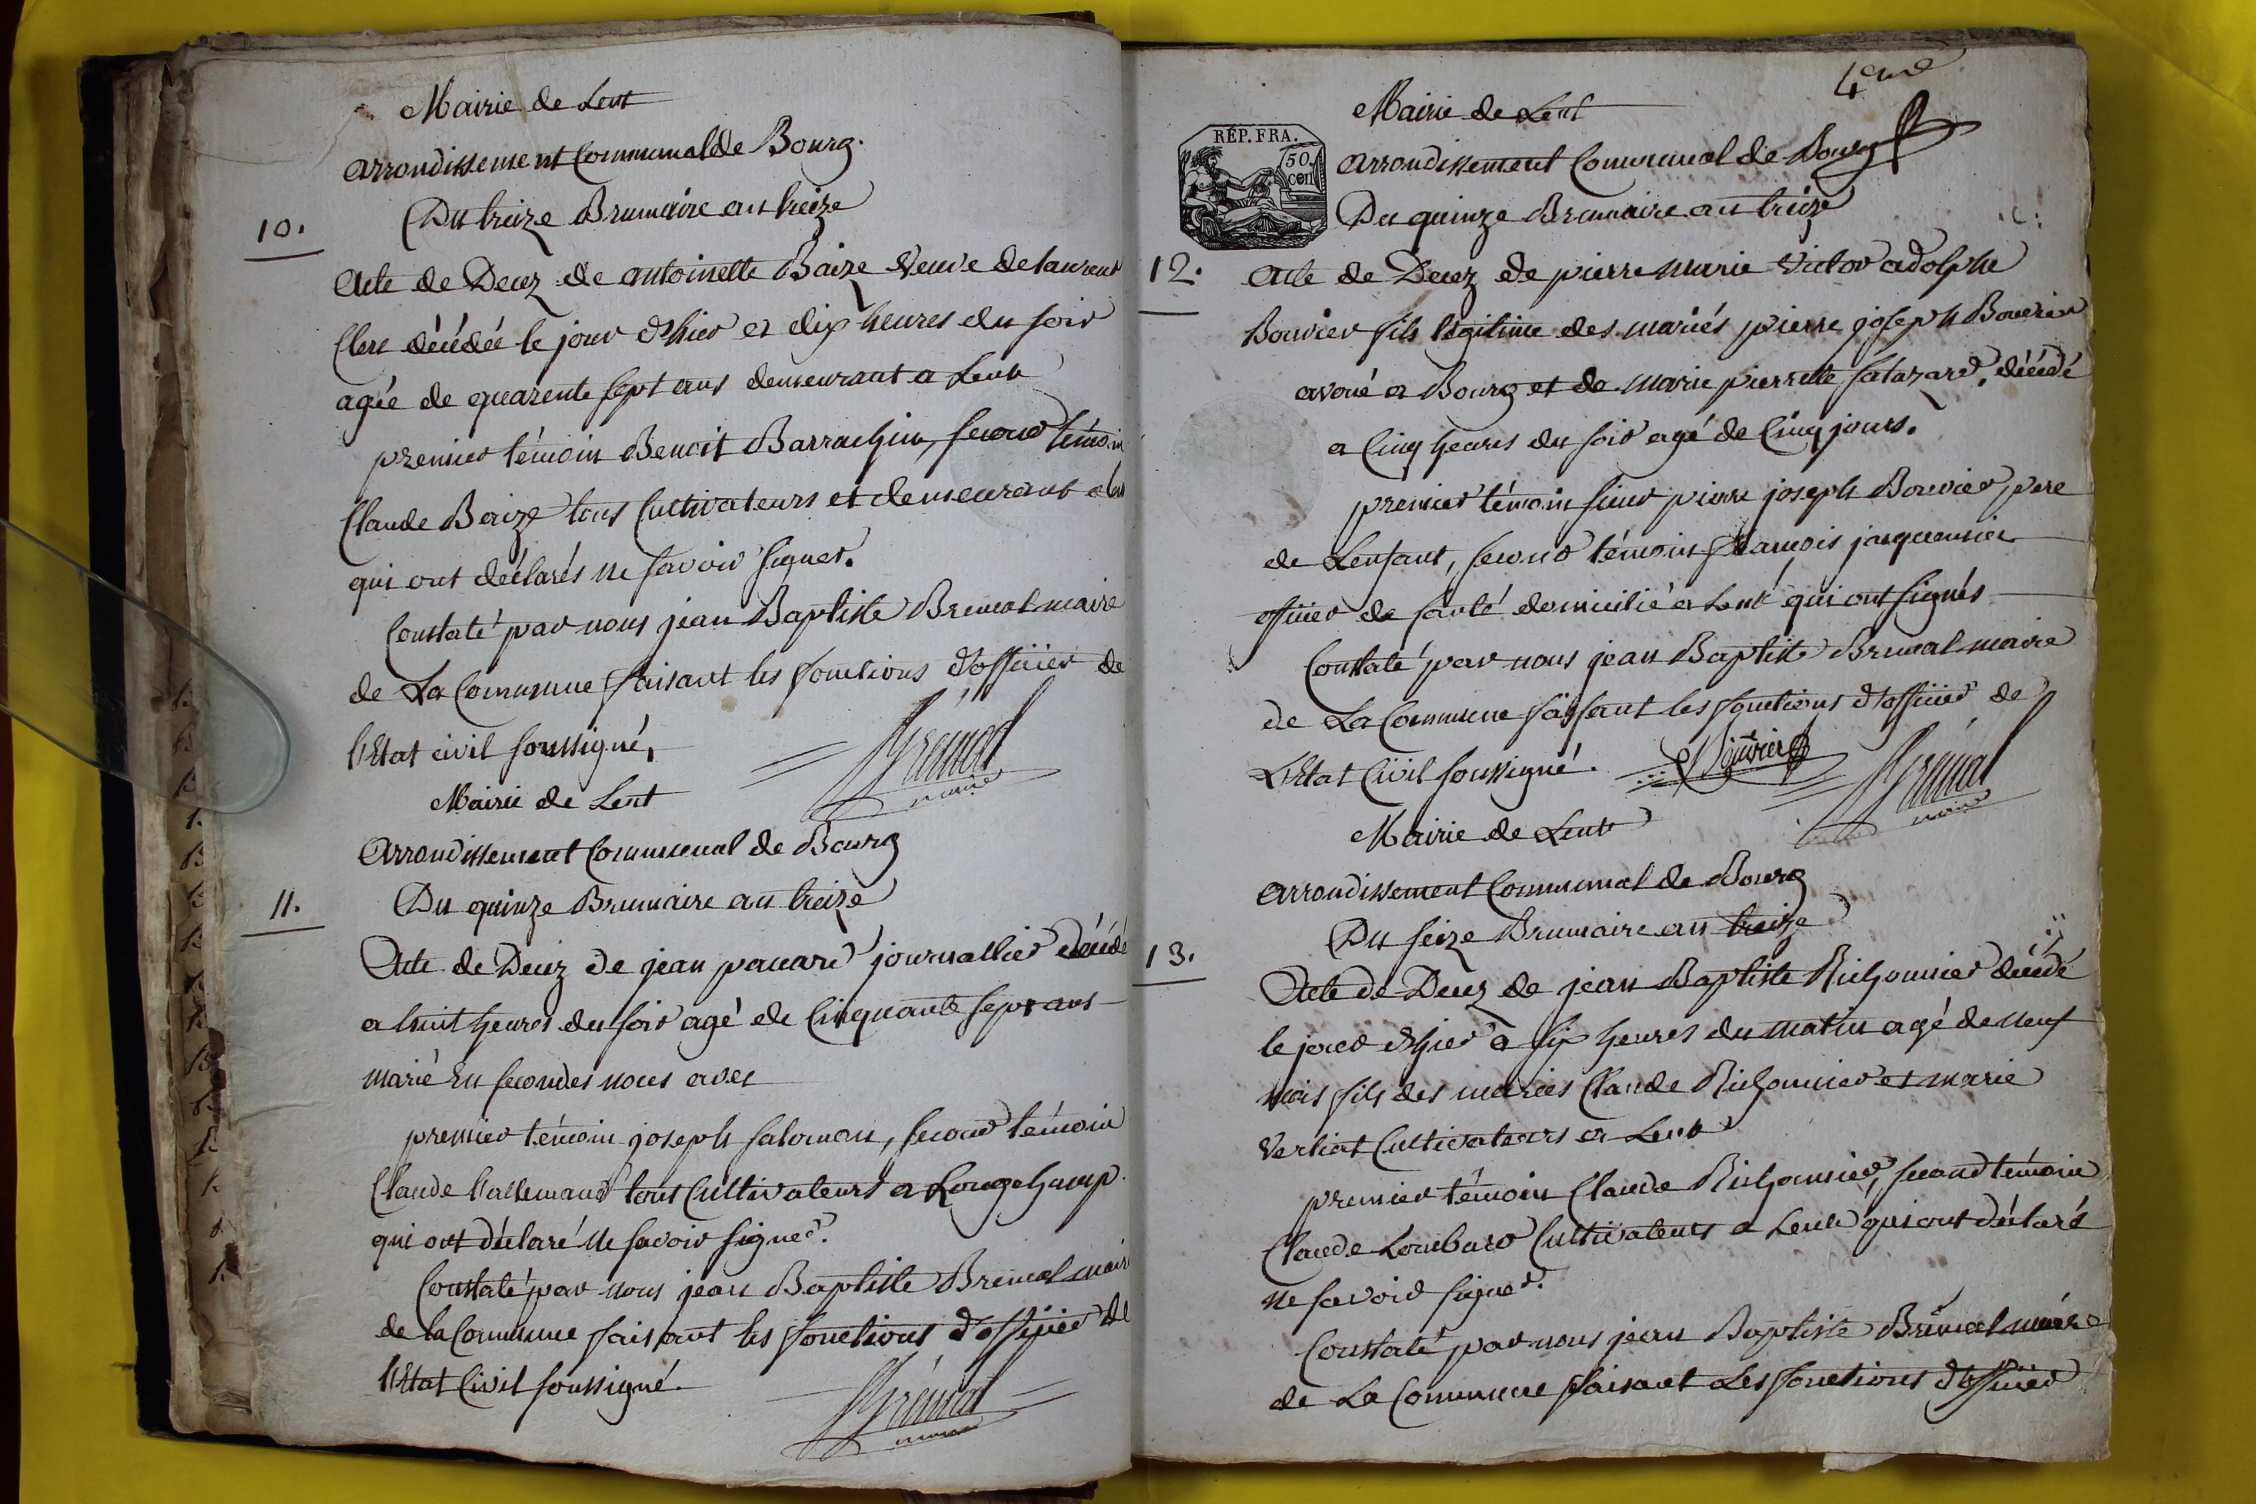 Mairie de Lent
arrondissement Communal de Bourg.
Du treize Brumaire an treize
10.
Acte de Decez de antoinette Baize veuve de laurent
Clerc décédée le jour d'hier a dix heures du soir
agée de quarente sept ans demeurant a Lent
premier témoin Benoit Barrachin, second témoin
Claude Baize tous Cultivateurs et demeurant a Lent
qui ont déclarés ne savoir signer.
Constaté par nous jean Baptiste Bremal maire
de La Commune faisant les fonctions d'officier de
l'Etat civil soussigné,
Brémal
maire
Mairie de Lent
Arrondissement Communal de Bourg
11.
Du quinze Brumaire an treize
Acte de Decez de jean pacard journallier décédé
a huit heures du soir agé de Cinquante sept ans
marié En secondes noces avec
premier témoin joseph salomon, second témoin
Claude l'allemand tous Cultivateurs a Longchamp.
qui ont déclaré ne savoir signer.
Constaté par nous jean Baptiste Bremal maire
de la Commune faisant les fonctions d'officier de
l'Etat Civil soussigné.
Brémal
maire
4eme
Mairie de Lent
RÉP. FRA.
50.
cen
arrondissement Communal de Bourg
Du quinze Brumaire an treize
12.
acte de Decez de pierre marie victor adolphe
Bouvier fils légitime des mariés pierre joseph Bouvier
avoué a Bourg et de marie pierrette salazard, décédé
a Cinq heures du soir agé de Cinq jours.
premier témoin sieur pierre joseph Bouvier pere
de Lenfant, second témoin françois jacquemier
officier de santé domicilié a Lent qui ont signés
Constaté par nous jean Baptiste Bremal maire
de La Commune faisant les fonctions d'officier de
L'Etat Civil soussigné.
Bouvier
Brémal
maire
Mairie de Lent
arrondissement Communal de Bourg
Du seize Brumaire an treize
13.
Acte de Decez de jean Baptiste Richonnier décédé
le jour d'hier a six heures du matin agé de neuf
mois fils des mariés Claude Richonnier et marie
Verliat Cultivateurs a Lent
premier témoin Claude Richonnier, second témoin
Claude Lombard Cultivateurs a Lent qui ont déclaré
ne savoir signer.
Constaté par nous jean Baptiste Brémal maire
de La Commune faisant Les fonctions d'officier